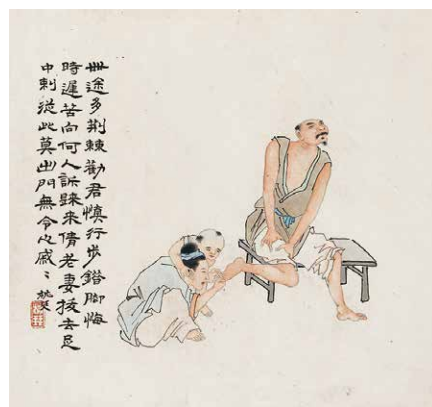 世途多荆棘勸君慎行步錯脚悔
時遲苦向何人訴踈來倩老妻拔去足
中刺從此莫出門無令心戚〻